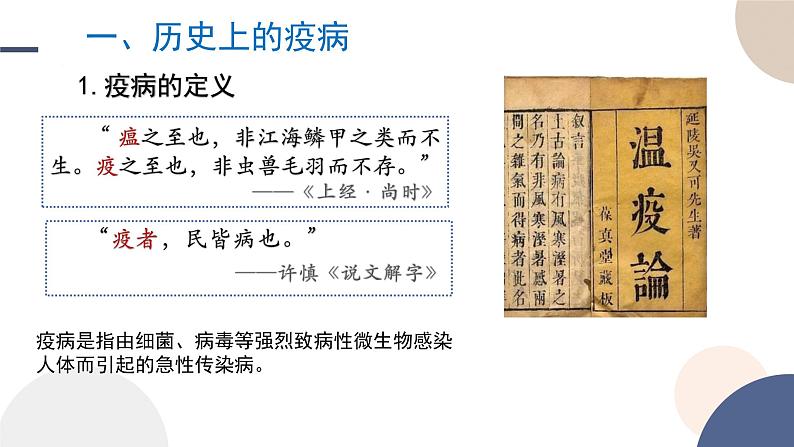 一、历史上的疫病
1.疫病的定义
“瘟之至也，非江海鳞甲之类而不
生。疫之至也，非虫兽毛羽而不存。”
——《上经·尚时》
“疫者，民皆病也。”
——许慎《说文解字》
疫病是指由细菌、病毒等强烈致病性微生物感染
人体而引起的急性传染病。
延陵吳又可先生著
温疫論
葆真堂藏板
叙言
上古論病有風寒溼暑之
名乃有非風寒溼暑感兩
間之雜氣而得病者此